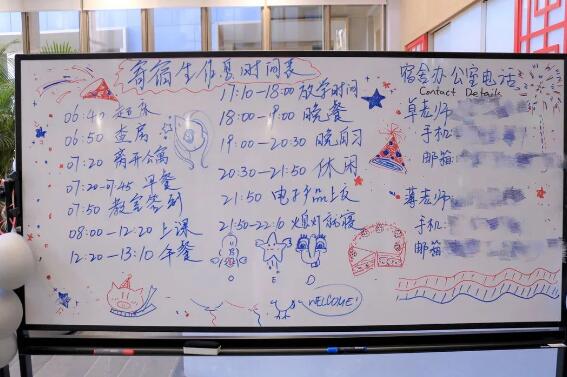 寄宿生作息时间表
06:40 起床
06:50 查房
07:20 离开公寓
07:20-07:45 早餐
07:50 教室签到
08:00-12:20 上课
12:20-13:10 午餐
17:10-18:00 放学时间
18:00-9:00 晚餐
19:00-20:30 晚自习
20:30-21:50 休闲
21:50 电子产品上交
21:50-22:10 熄灯就寝
O E D
WELCOME!
宿舍办公室电话
Contact Details
草老师:
手机:
邮箱:
蒋老师:
手机:
邮箱: